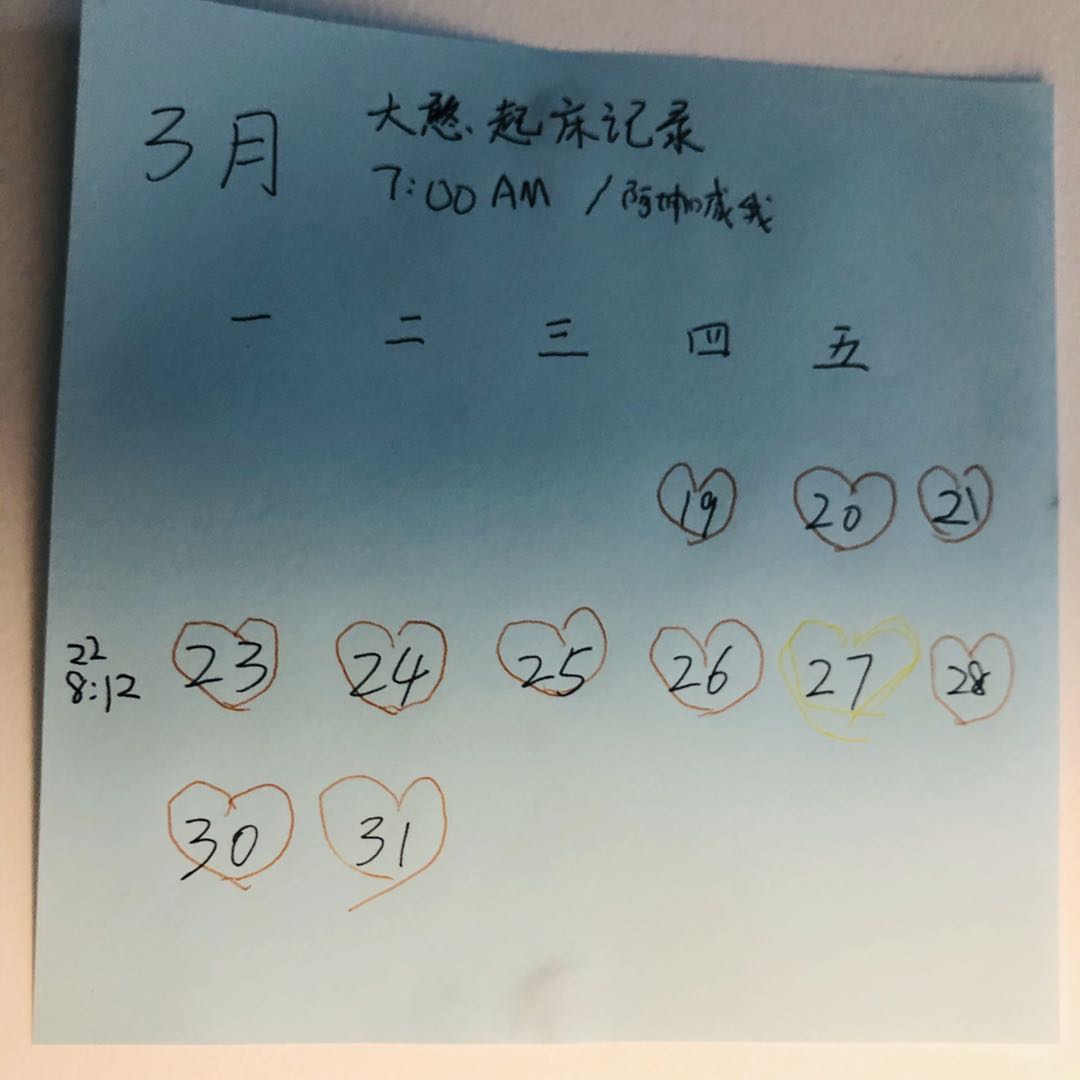 3月 大憨起床记录
7:00 AM /
一 二 三 四 五
19 20 21
22 23 24 25 26 27 28
8:12
30 31